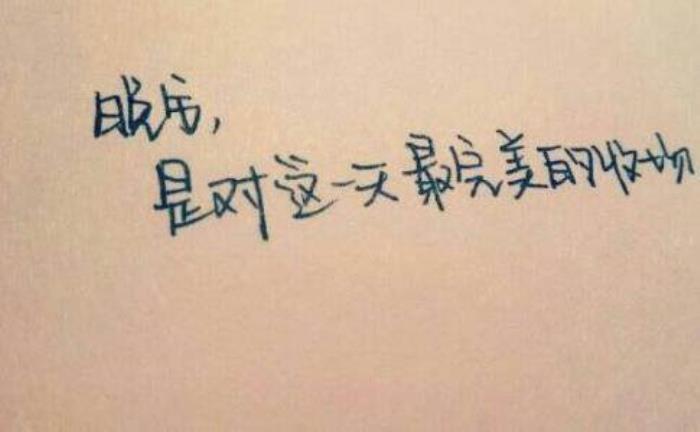 晚安,
是对这一天最完美的收场